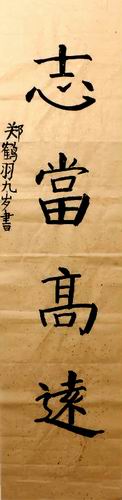 志當高遠
郑鹤羽九岁書